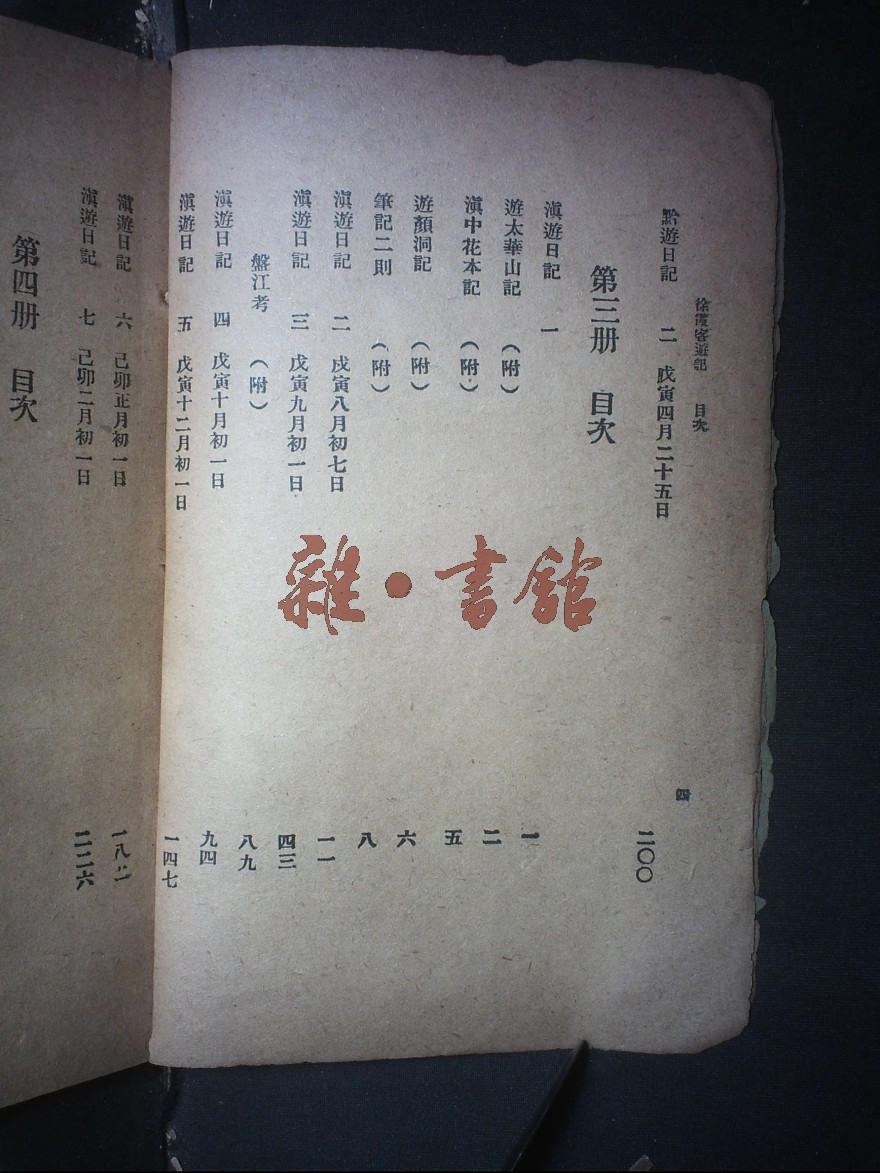 徐霞客遊記 目次
四
黔遊日記 二 戊寅四月二十五日 二〇〇
第三册 目次
滇遊日記 一 一
遊太華山記 (附) 二
滇中花木記 (附) 五
遊顏洞記 (附) 六
筆記二則 (附) 八
滇遊日記 二 戊寅八月初七日 一一
滇遊日記 三 戊寅九月初一日 四三
盤江考 (附) 八九
滇遊日記 四 戊寅十月初一日 九四
滇遊日記 五 戊寅十二月初一日 一四七
滇遊日記 六 己卯正月初一日 一八
滇遊日記 七 己卯二月初一日 二二六
第四册 目次
雜·書館